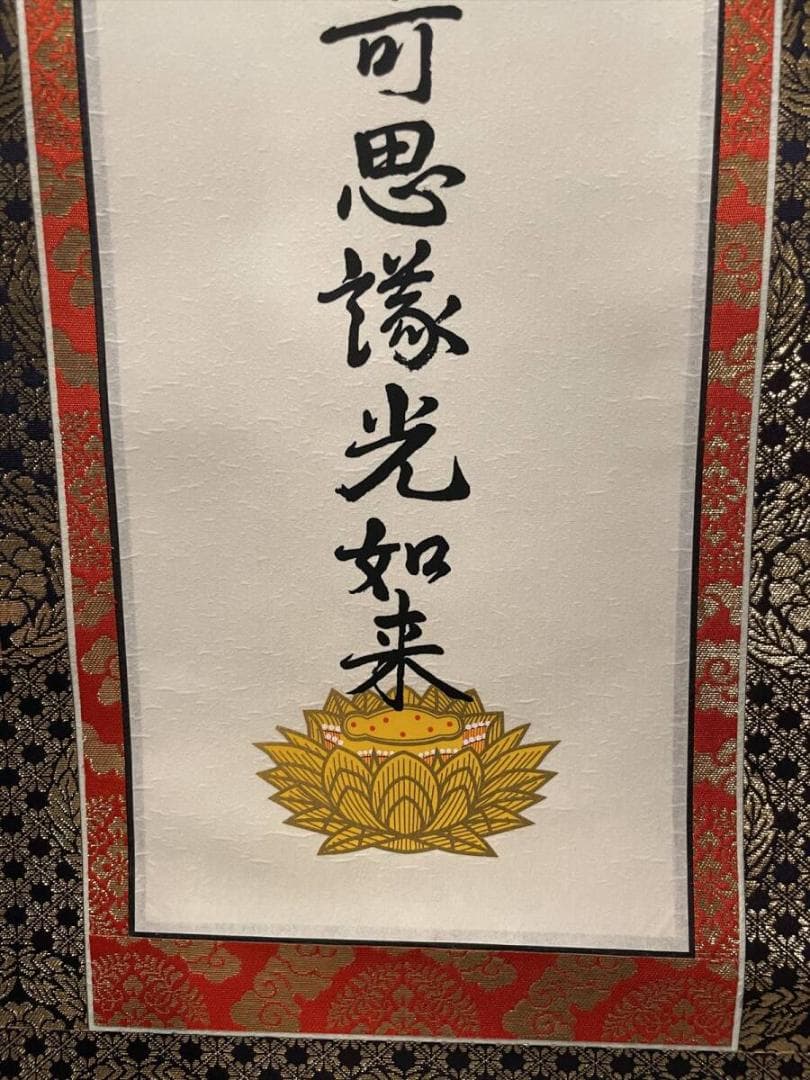 可思議光如来